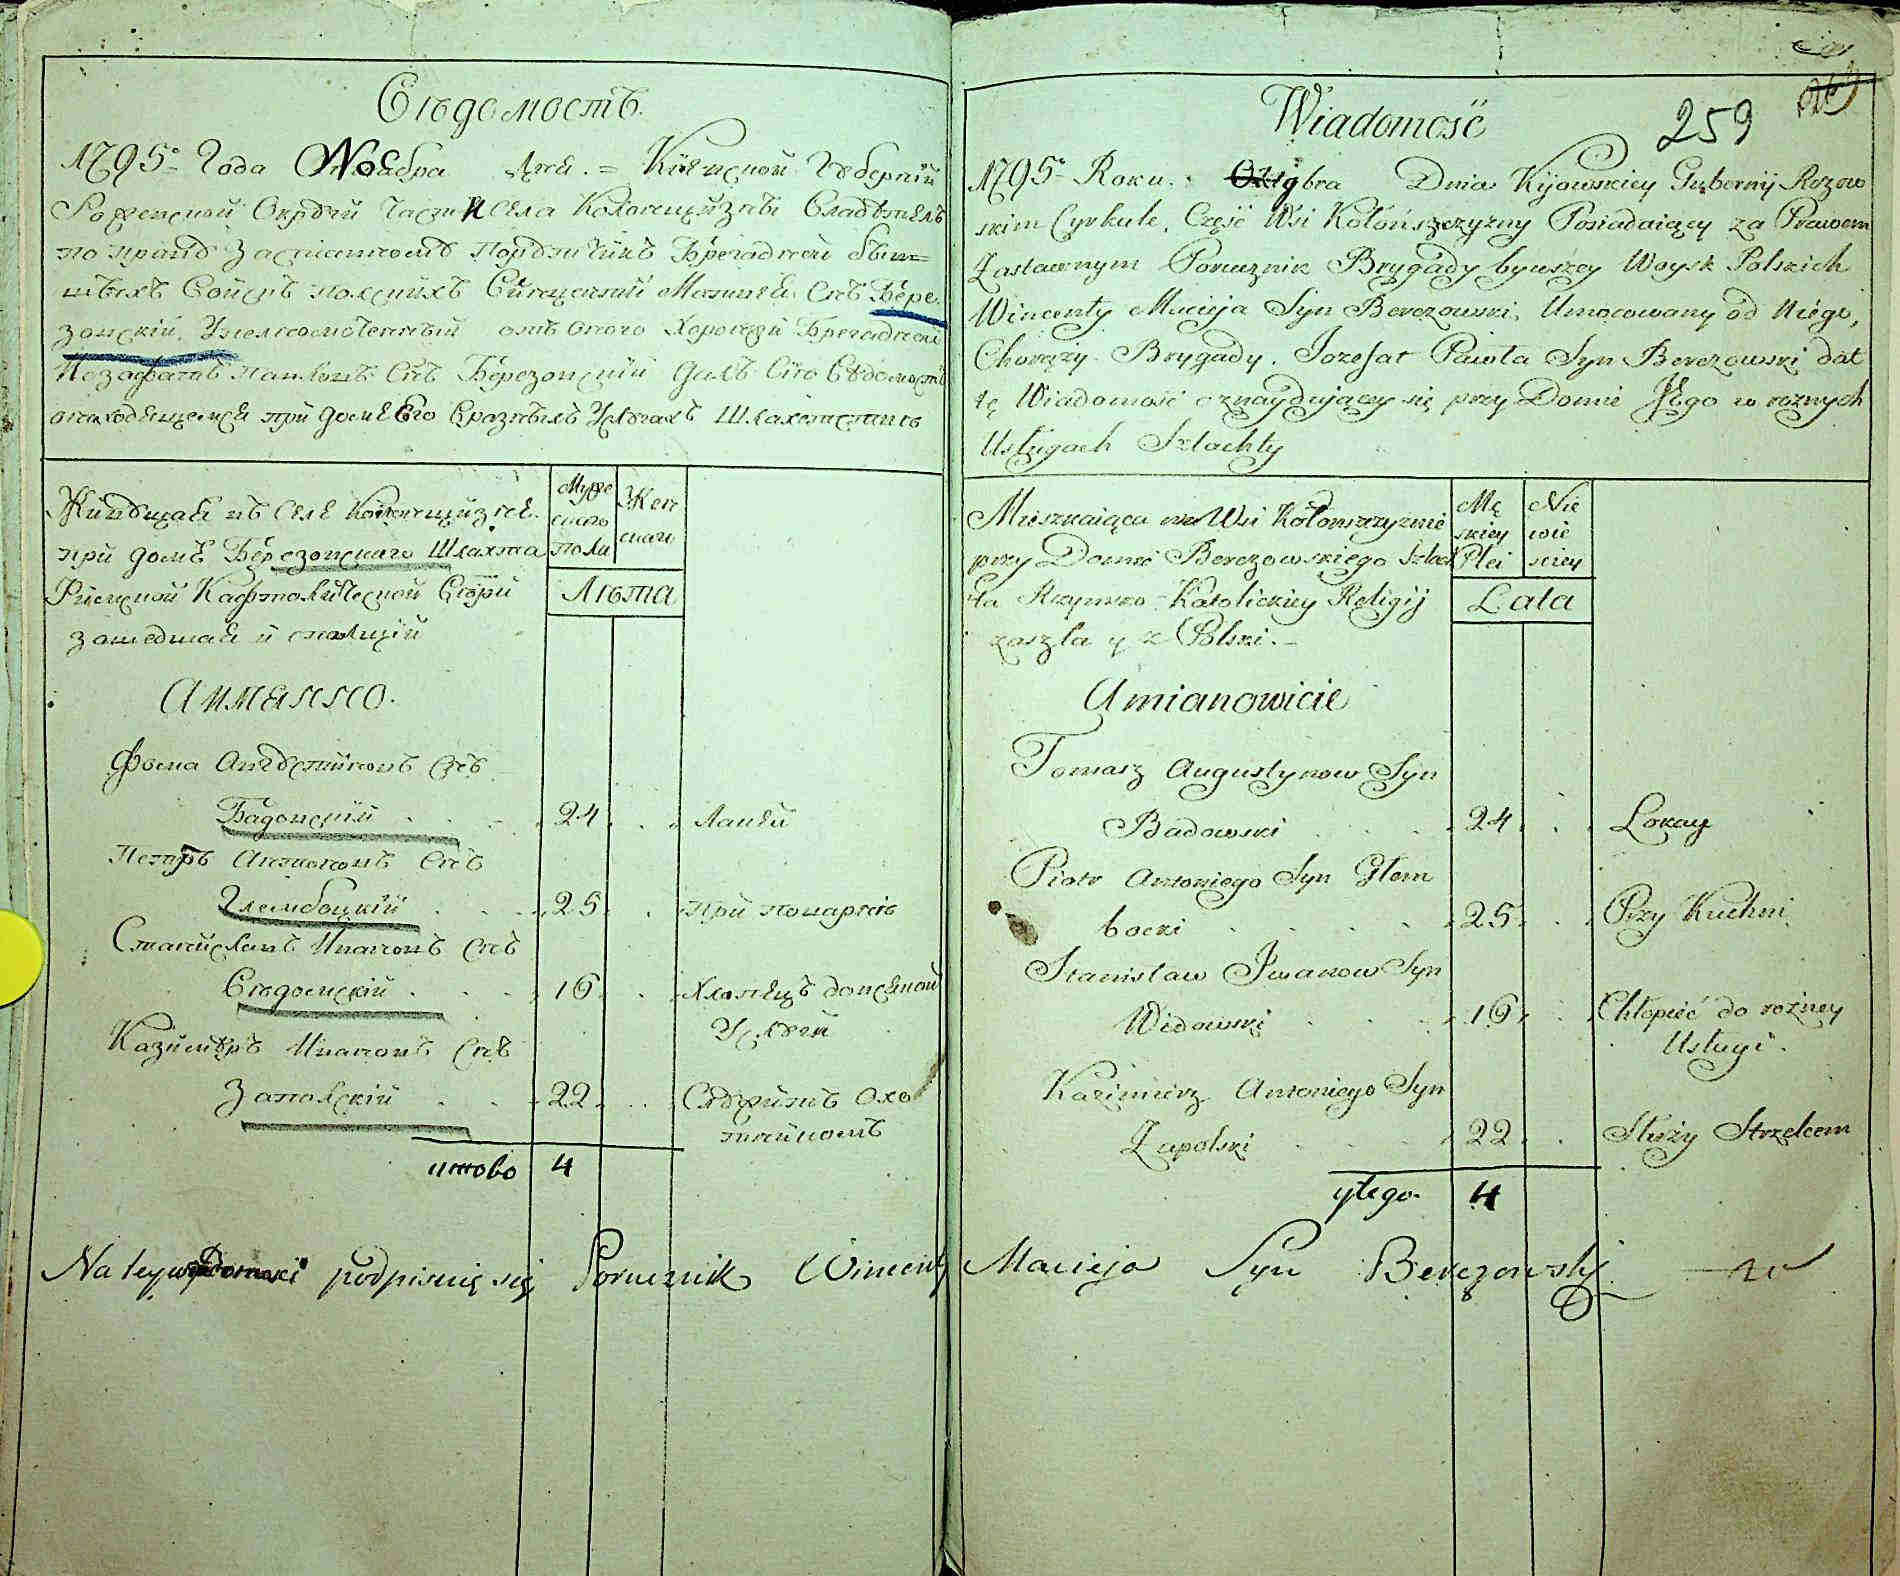 Вѣдомость.
1795го Года Ноября Дня. = Кіевской Губерніи
Рожевской Округи Части Села Колонщизны Владѣтель
по праву Заставному Поручикъ Брегадной быв=
шыхъ Войскъ полскихъ Винцентій Матвея Снъ Бере
зовскій, Уполномоченный отъ оного Хоронжій Брегадной
Іозафатъ Павловъ Снъ Березовскій далъ Сію Вѣдомость
онаходящемся при доме Его Вразныхъ Услугахъ Шляхетстве
Живущая въ Селе Колонщизне
при домѣ Березовского Шляхта
Римской Кафтолической Вѣри
зашедшая и сполщи
Муже
ского
пола
Жен
ского
Лѣта
Аимянно.
Фома Августиновъ Снъ
Бадовскій . . . 24 . . Лакей
Петръ Антоновъ Снъ
Глембоцкій . . . 25 . . При поварне
Станиславъ Ивановъ Снъ
Видовскій . . . 16 . . Хлопецъ
Услуги
Казимеръ Ивановъ Снъ
Запольскій . . . 22 . . Служитъ Охо
тникомъ
итово 4
Na tey wiadomosci podpisuię się Porucznik Wincenty Macieja Syn Berezowski
259
Wiadomość
1795o Roku. gbra Dnia Kijowskiey Gubernij Rozow
skim Cyrkule, Część Wsi Kołońszczyzny Posiadaiący za Prawem
Zastawnym Porucznik Brygady bywszey Woysk Polskich
Wincenty Macieja Syn Berezowski, Umocowany od Niego,
Chorąży Brygady. Jozefat Pawła Syn Berezowski dał
tę Wiadomość o znayduiącey się przy Domie Jego w rożnych
Usługach Szlachty
Mieszkaiąca we Wsi Kołonszczyznie
przy Domie Berezowskiego Szlach
ta Rzymsko-Katolickiey Religij
zaszła y z Polski.-
Mę
skiey
Płci
Nie
wie
sciey
Lata
Amianowicie
Tomasz Augustynow Syn
Badowski . . . 24 . . Lokay
Piotr Antoniego Syn Głem
bocki . . . 25 . . Przy Kuchni
Stanisław Jwanow Syn
Widowski . . . 16 . . Chłopiec do rożney
Usługi.
Kazimierz Antoniego Syn
Zapolski . . . 22 . . Służy Strzelcem
ytego. 4